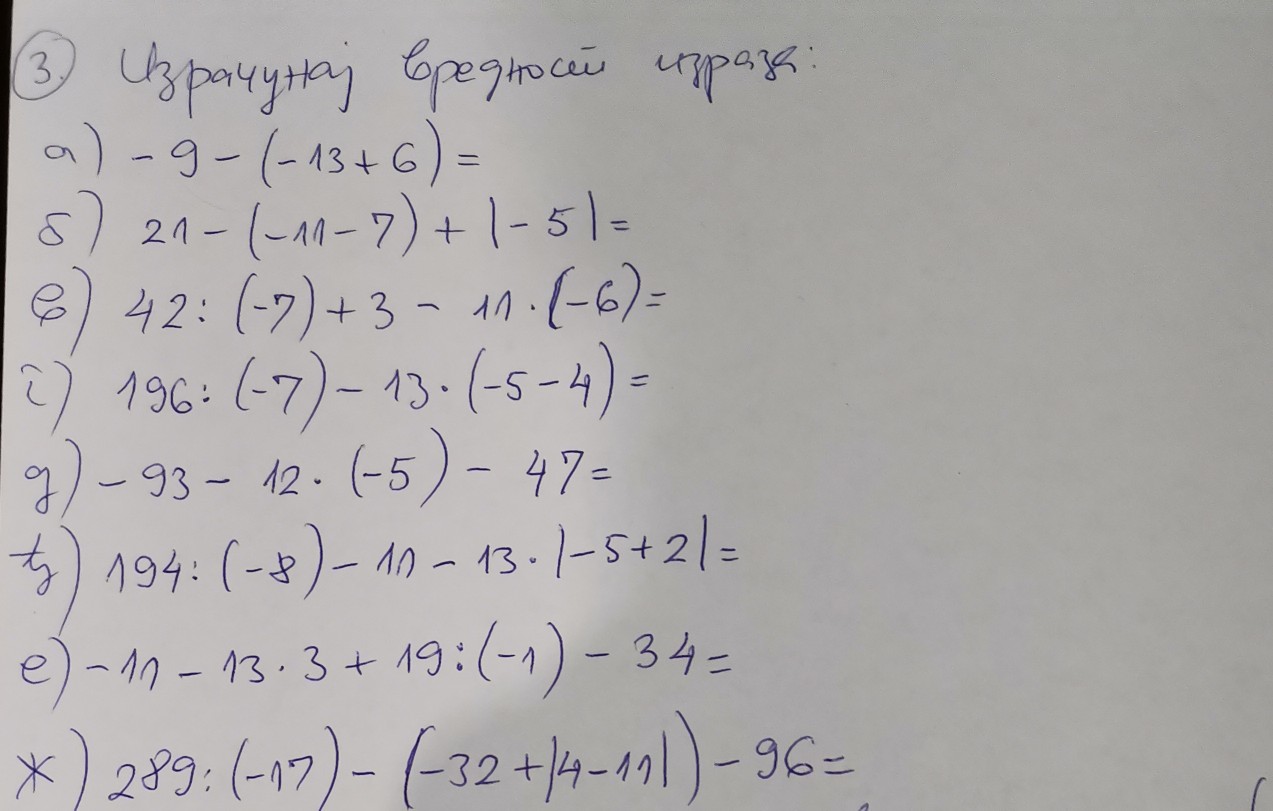 3. Израчунај вредност израза:
а) -9-(-13+6)=
б) 21-(-11-7)+|-5|=
в) 42:(-7)+3-11·(-6)=
г) 196:(-7)-13·(-5-4)=
д) -93-12·(-5)-47=
ђ) 194:(-8)-11-13·|-5+2|=
е) -11-13·3+19:(-1)-34=
ж) 289:(-17)-(-32+|4-11|)-96=